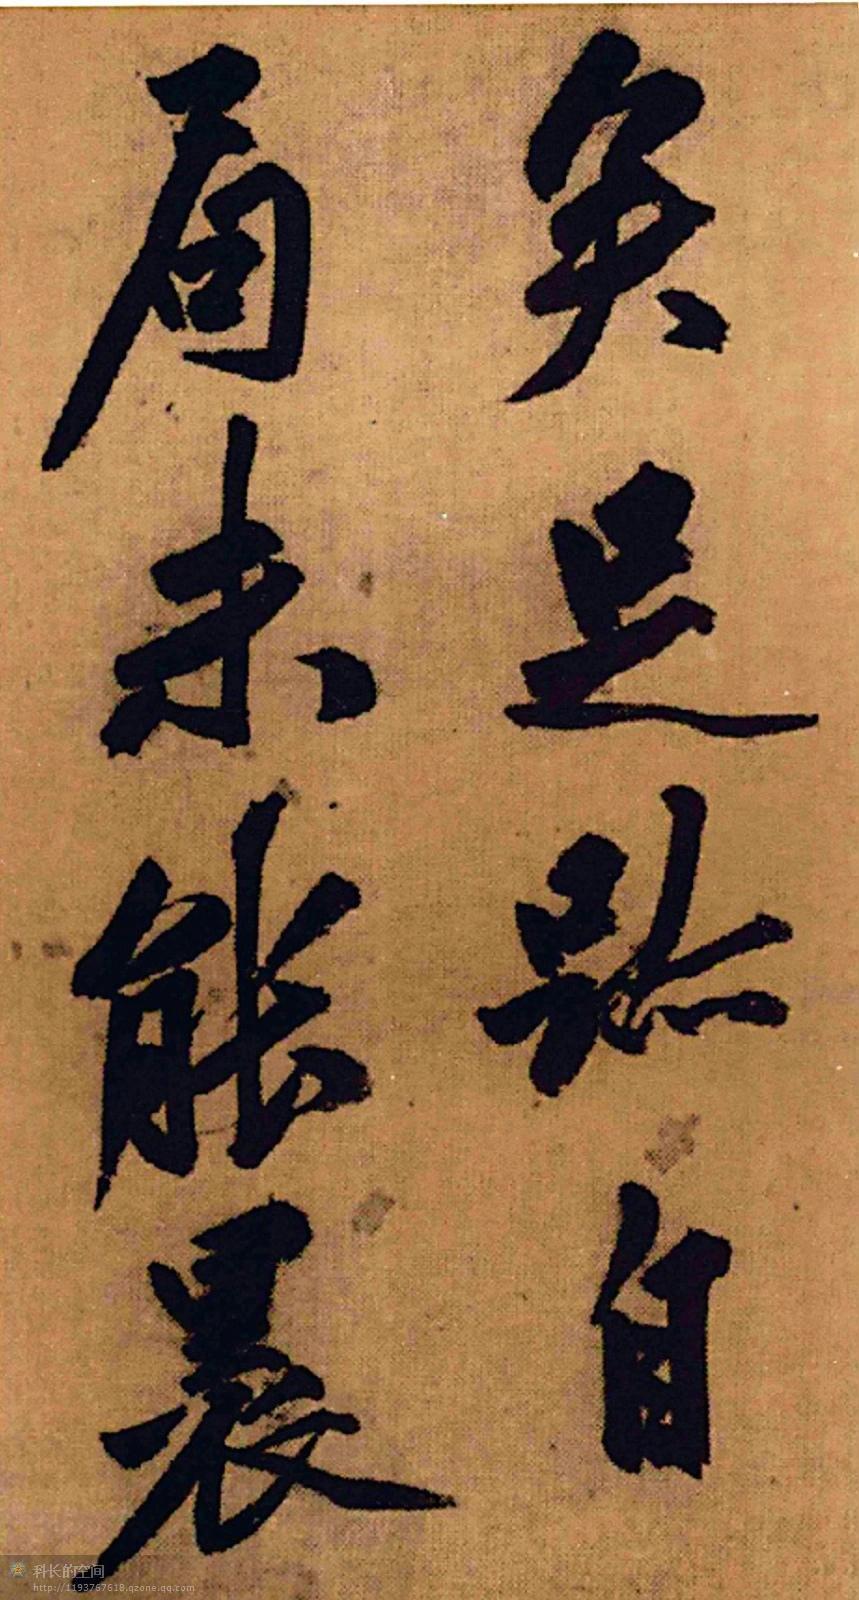 矣足跡自
局未能晨
科长的空间
http://1193767618.qzone.qq.com